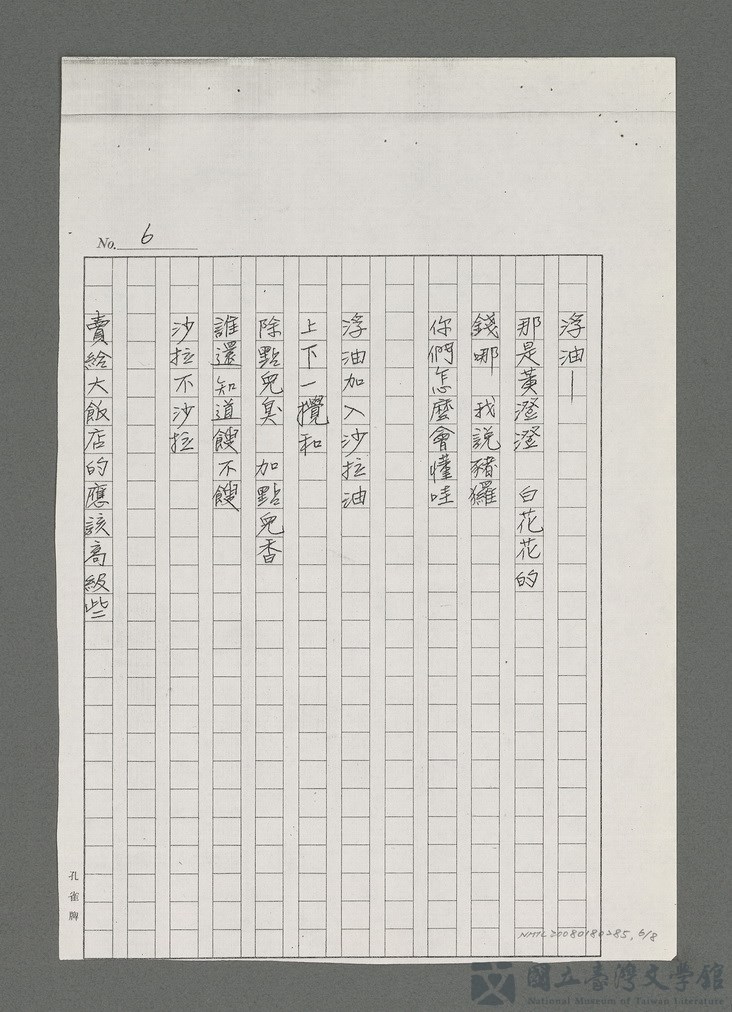 No. 6
浮油—
那是黃澄澄 白花花的
錢哪 我說豬玀
你們怎麼會懂哇
浮油加入沙拉油
上下一攪和
除點兒臭 加點兒香
誰還知道餿不餿
沙拉不沙拉
賣給大飯店的應該高級些
孔雀牌
NMTL20080180285, 6/8
國立臺灣文學館
National Museum of Taiwan Literature